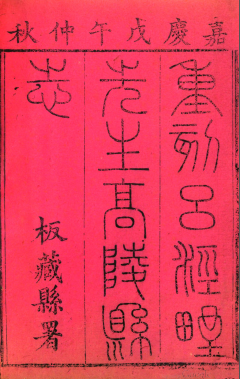 嘉慶戊午仲秋
重刻呂涇野
先生高陵縣
志
板藏縣署